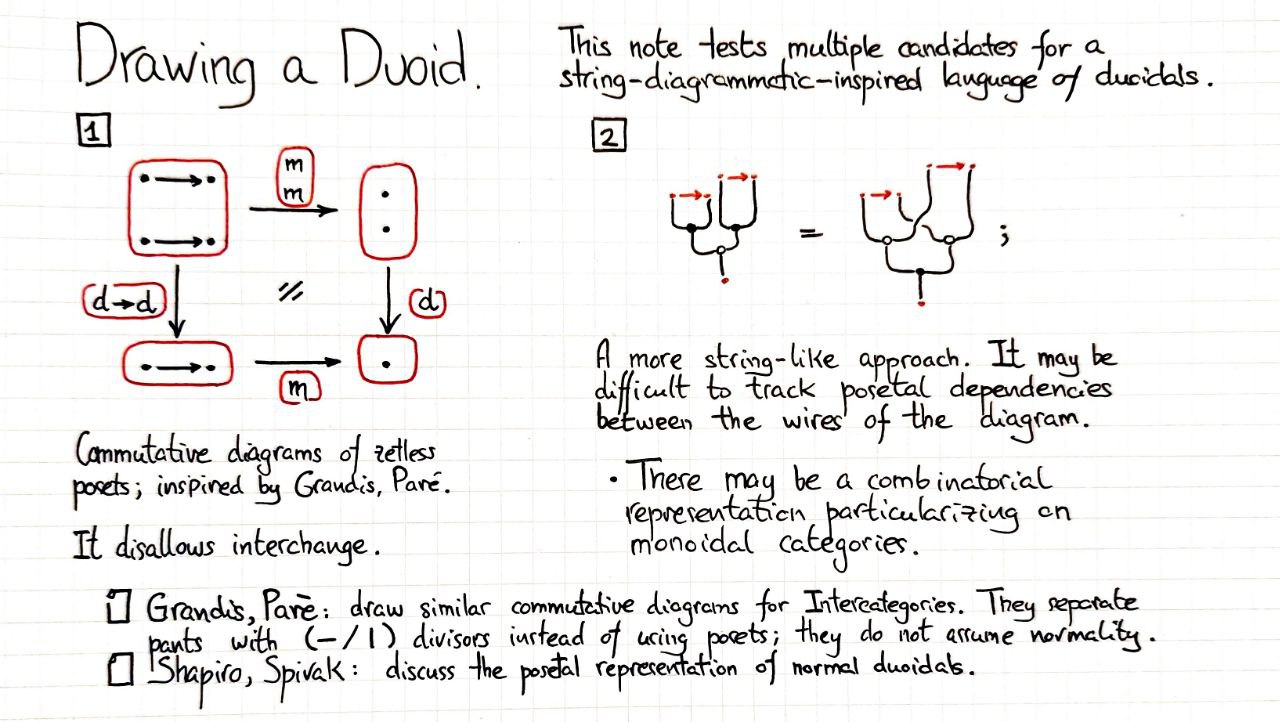 Drawing a Duoid.
This note tests multiple candidates for a
string-diagrammatic-inspired language of duoidals.
1
m
m
d→d
d
m
Commutative diagrams of zetless
posets; inspired by Grandis, Paré.
It disallows interchange.
2
= ;
A more string-like approach. It may be
difficult to track posetal dependencies
between the wires of the diagram.
• There may be a combinatorial
representation particularizing on
monoidal categories.
Grandis, Parē: draw similar commutative diagrams for Intercategories. They separate
pants with (-/|) divisors instead of using posets; they do not assume normality.
Shapiro, Spivak: discuss the posetal representation of normal duoidals.